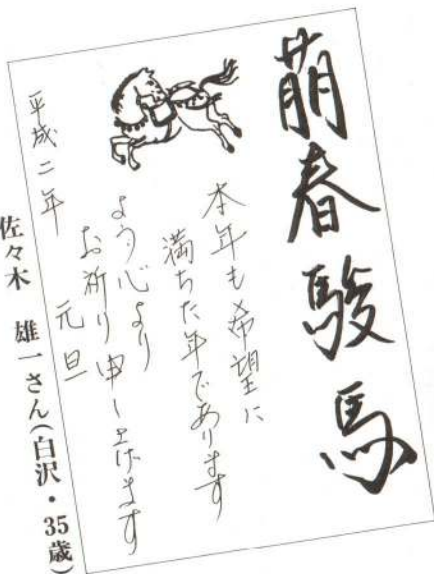 萌春駿馬
本年も希望に
満ちた年であります
よう心より
お祈り申し上げます
平成二年
元旦
佐々木 雄一さん(白沢・35歳)